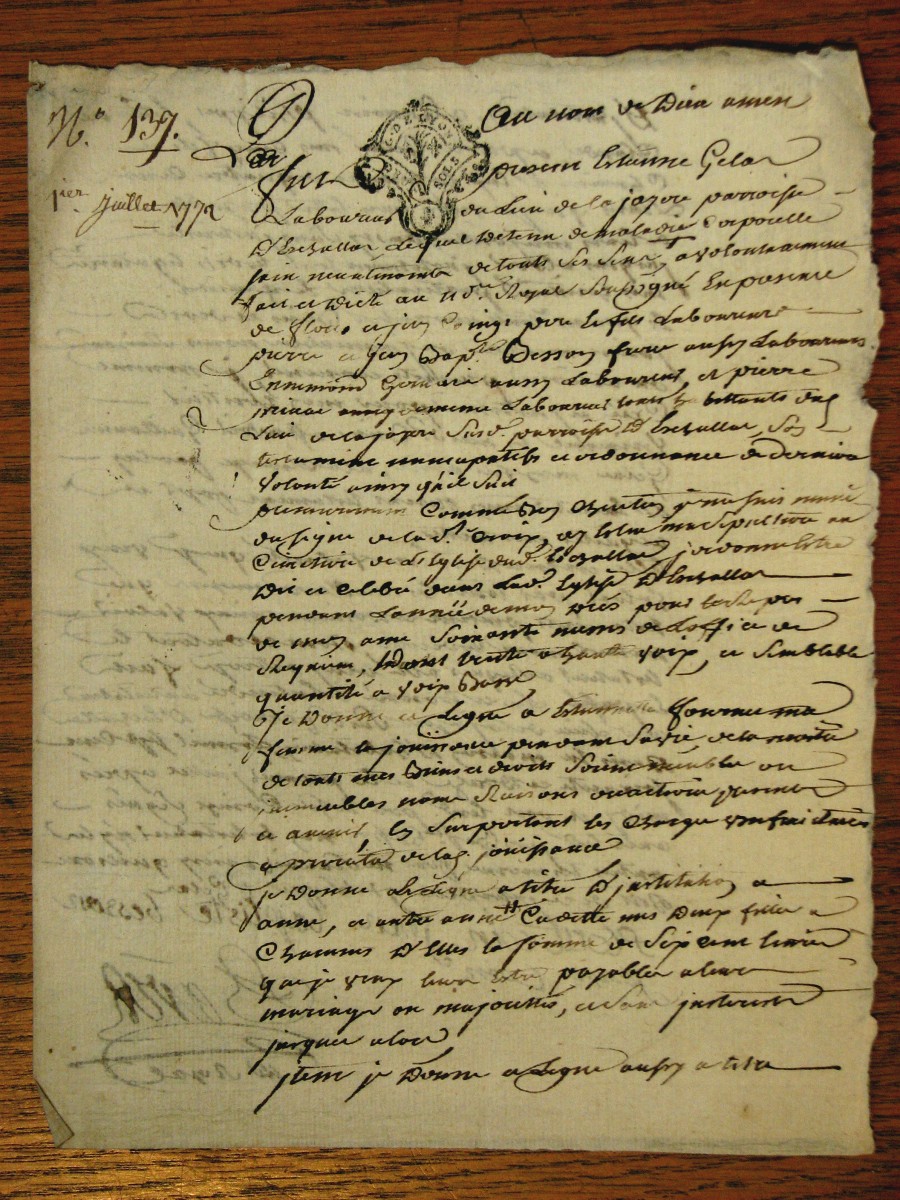 N.º 139.
1ier Juillet 1772
G. DE LYON
SOLS
Au nom de Dieu amen
Fut present Estienne Gela
Laboureur du Lieu de la parroisse
D'Eschallas Lequel Detenu de maladie Corporelle
sain neantmoins de touts ses sens, a volontairement
fait et Dicté au no.re Royal Soussigné En presence
de fleurie et jean pere et fils Laboureurs
pierre et jean Bap.te Besson frere aussy Laboureurs
Ennemond aussy Laboureur, et pierre
aussy de mesme Laboureur touts habittants du
Lieu de la susd. parroisse D'Eschallas, Son
testament nuncupatif et ordonnance de Derniere
Volonté ainsy qu'il suit
premierement Comme Bon Chretien je me suis muni
du signe de la s.te Croix, au
Cimetiere de L'Eglise dud. Eschallas, je donne Estre
Dit et Celebré dans Lad. Eglise D'Eschallas
pendant L'année de mon Dées pour le repos
de mon ame Soixante messes de L'office de
Requiem, dont trente a haute voix, et semblable
quantité a voix Basse
Je Donne et Legue a Estiennette fournel ma
femme la joüissance pendant sa vie de la moitié
de touts mes Biens et droits soit meuble ou
immeubles noms Raisons et actions presents
et avenir, En Supportant les Charges usufruitaires
a prorata de lad. joüissance
je Donne et Legue a titre D'institution a
anne, et autre anne Cadette mes Deux filles a
Chacunes D'Elles la somme de Sept cent livres
que je veux leurs estre payables a leur
mariage ou majorittés, et sans interests
jusques alors
jtem je Donne et Legue aussy a titre